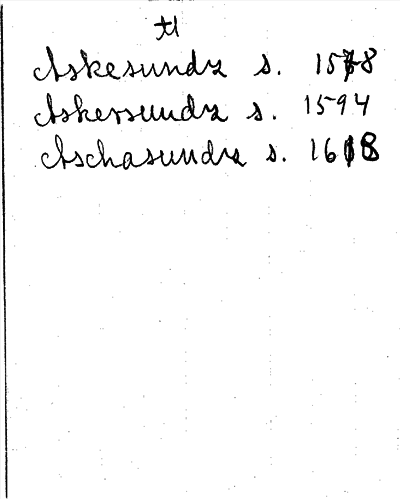 tl
Askesunda s. 1578
Askersunda s. 1594
Aschasunda s. 1618